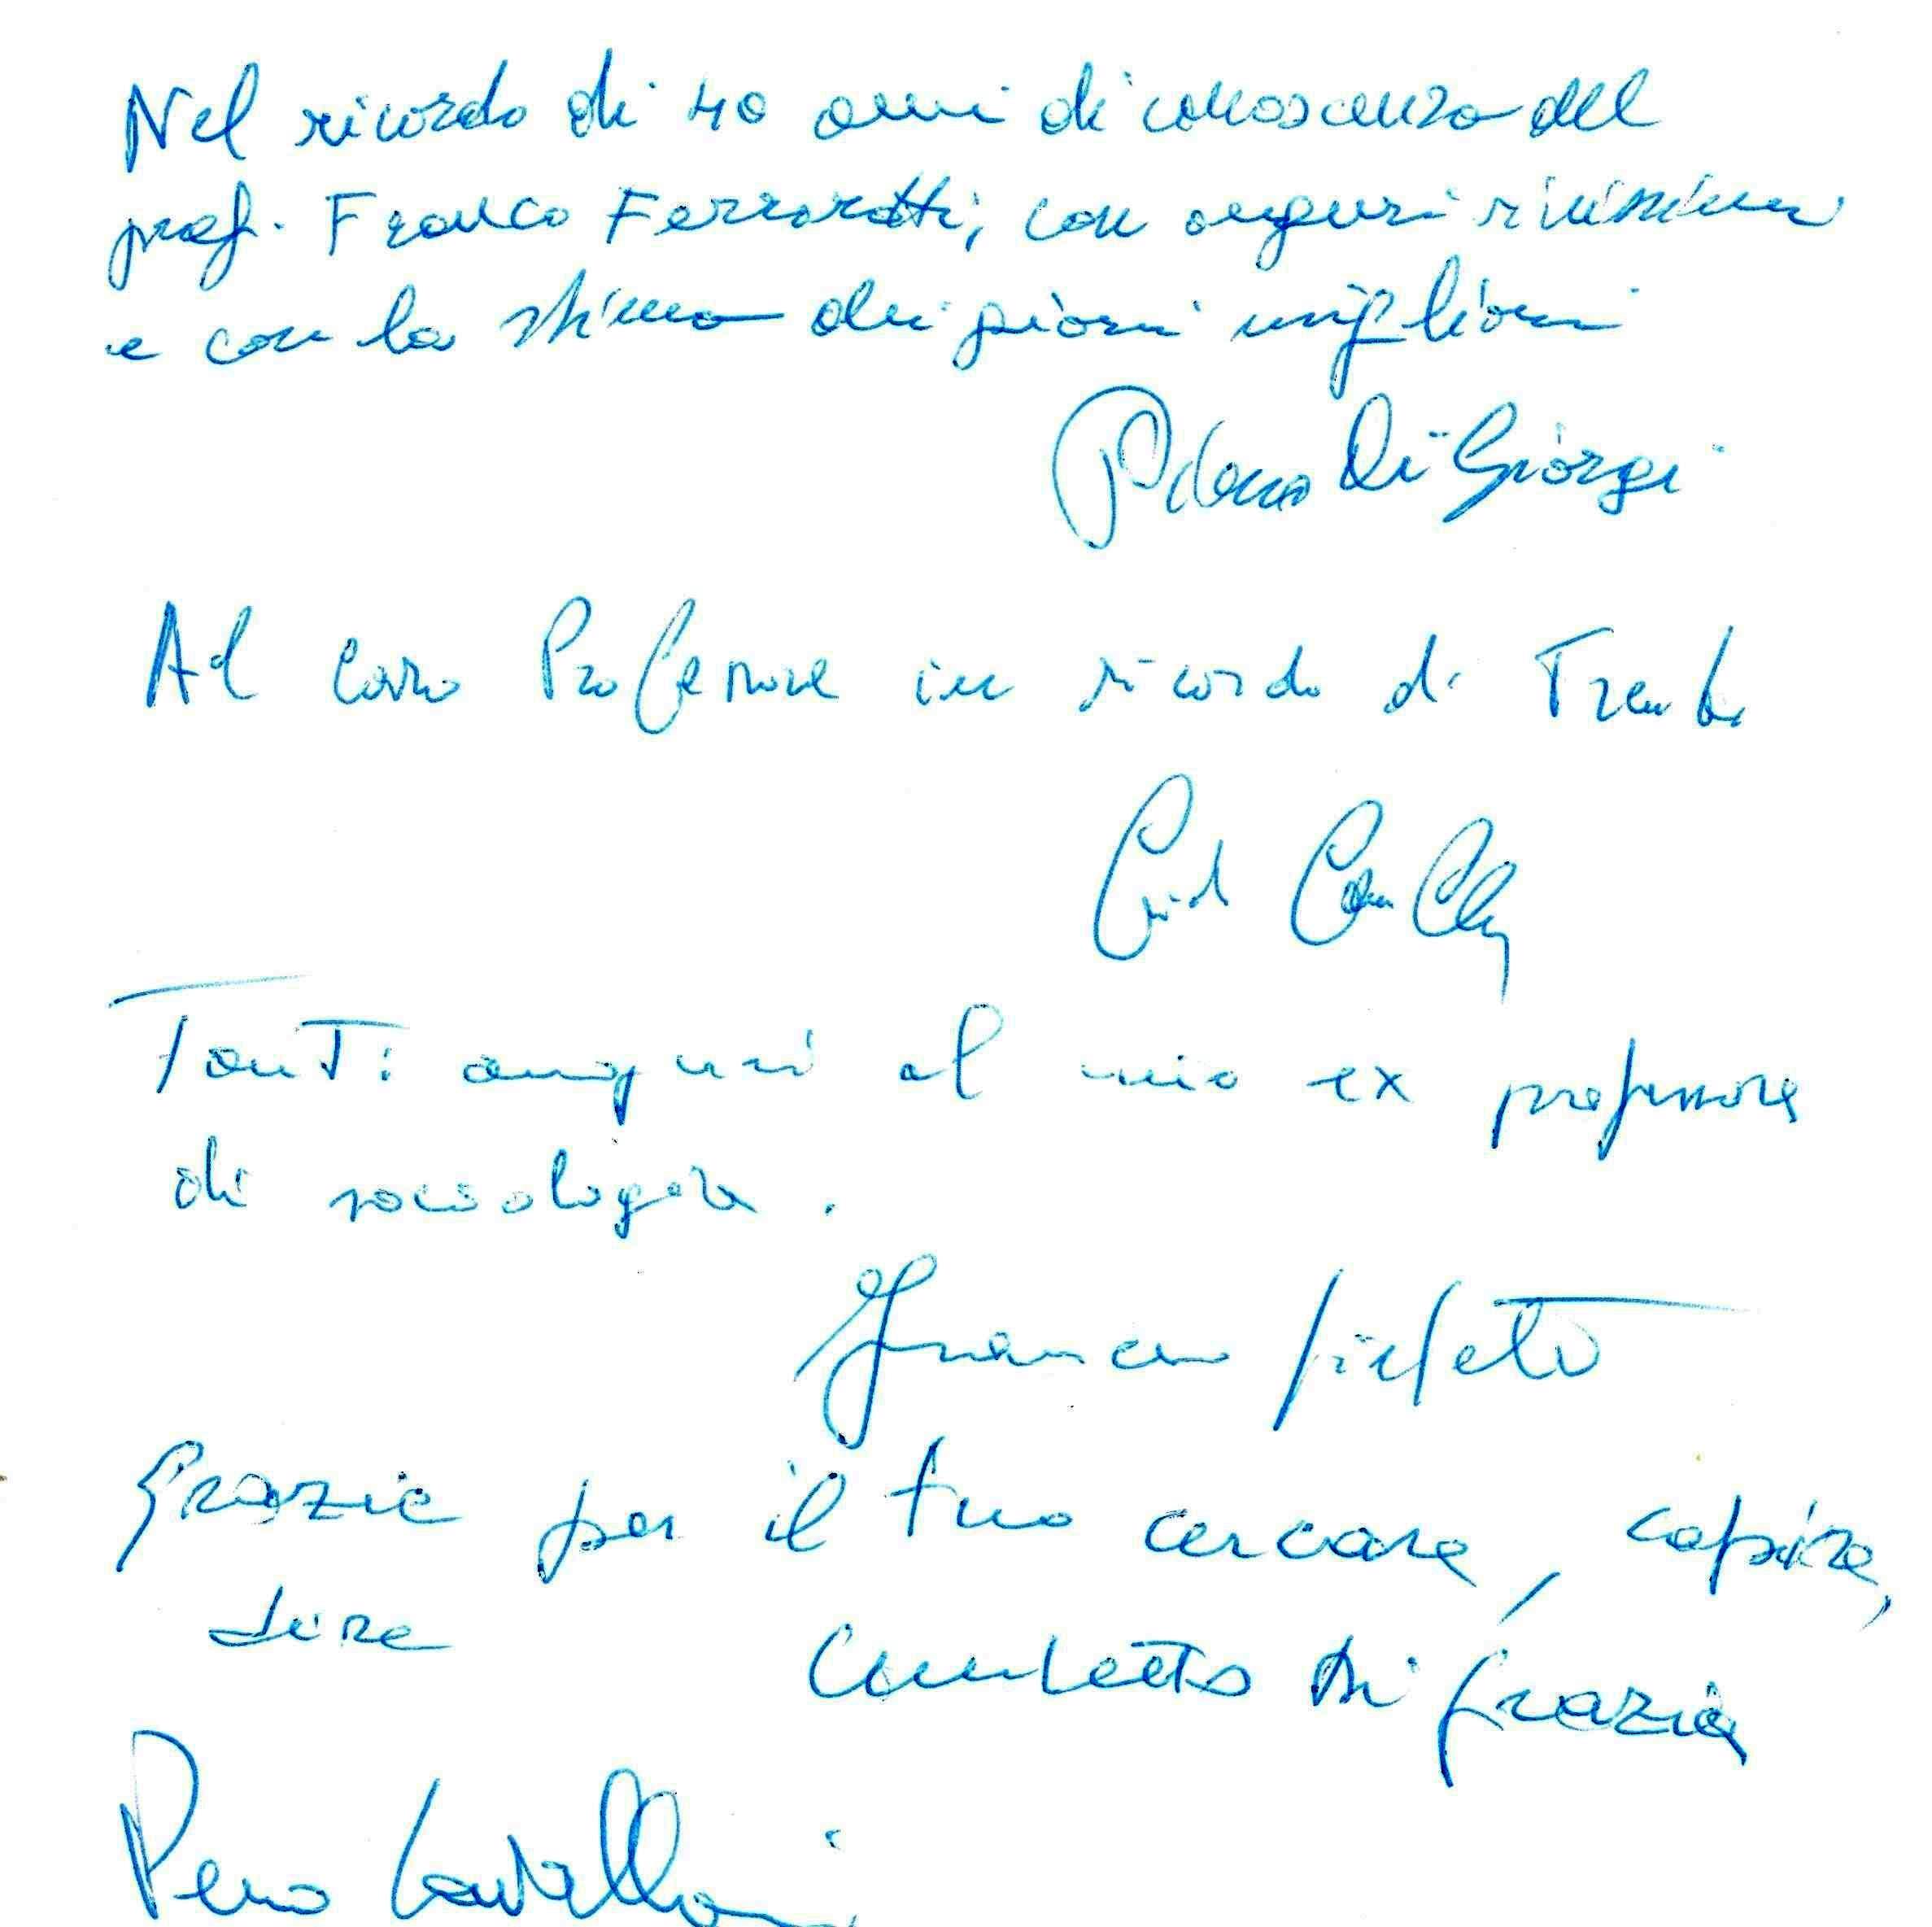 Nel ricordo di 40 anni di conoscenza del
prof. Franco Ferrarotti, con auguri vivissimi
e con la stima dei giorni migliori
Di Giorgi
Al caro Professore in ricordo di Trento
Tanti auguri al mio ex professore
di sociologia.
Francesco
Grazie per il tuo cercare, capire,
dire
Umberto Di Grazia
Piero Cavallini